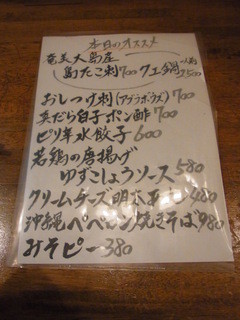 本日のオススメ
奄美大島産
島たこ刺700 クエ鍋一人前2500
おしつけ刺(アブラボウズ)700
真だら白子ポン酢700
ピリ辛水餃子600
若鶏の唐揚げ
ゆずこしょうソース580
クリームチーズ明太 480
沖縄ペペロン焼きそば980
みそピー380